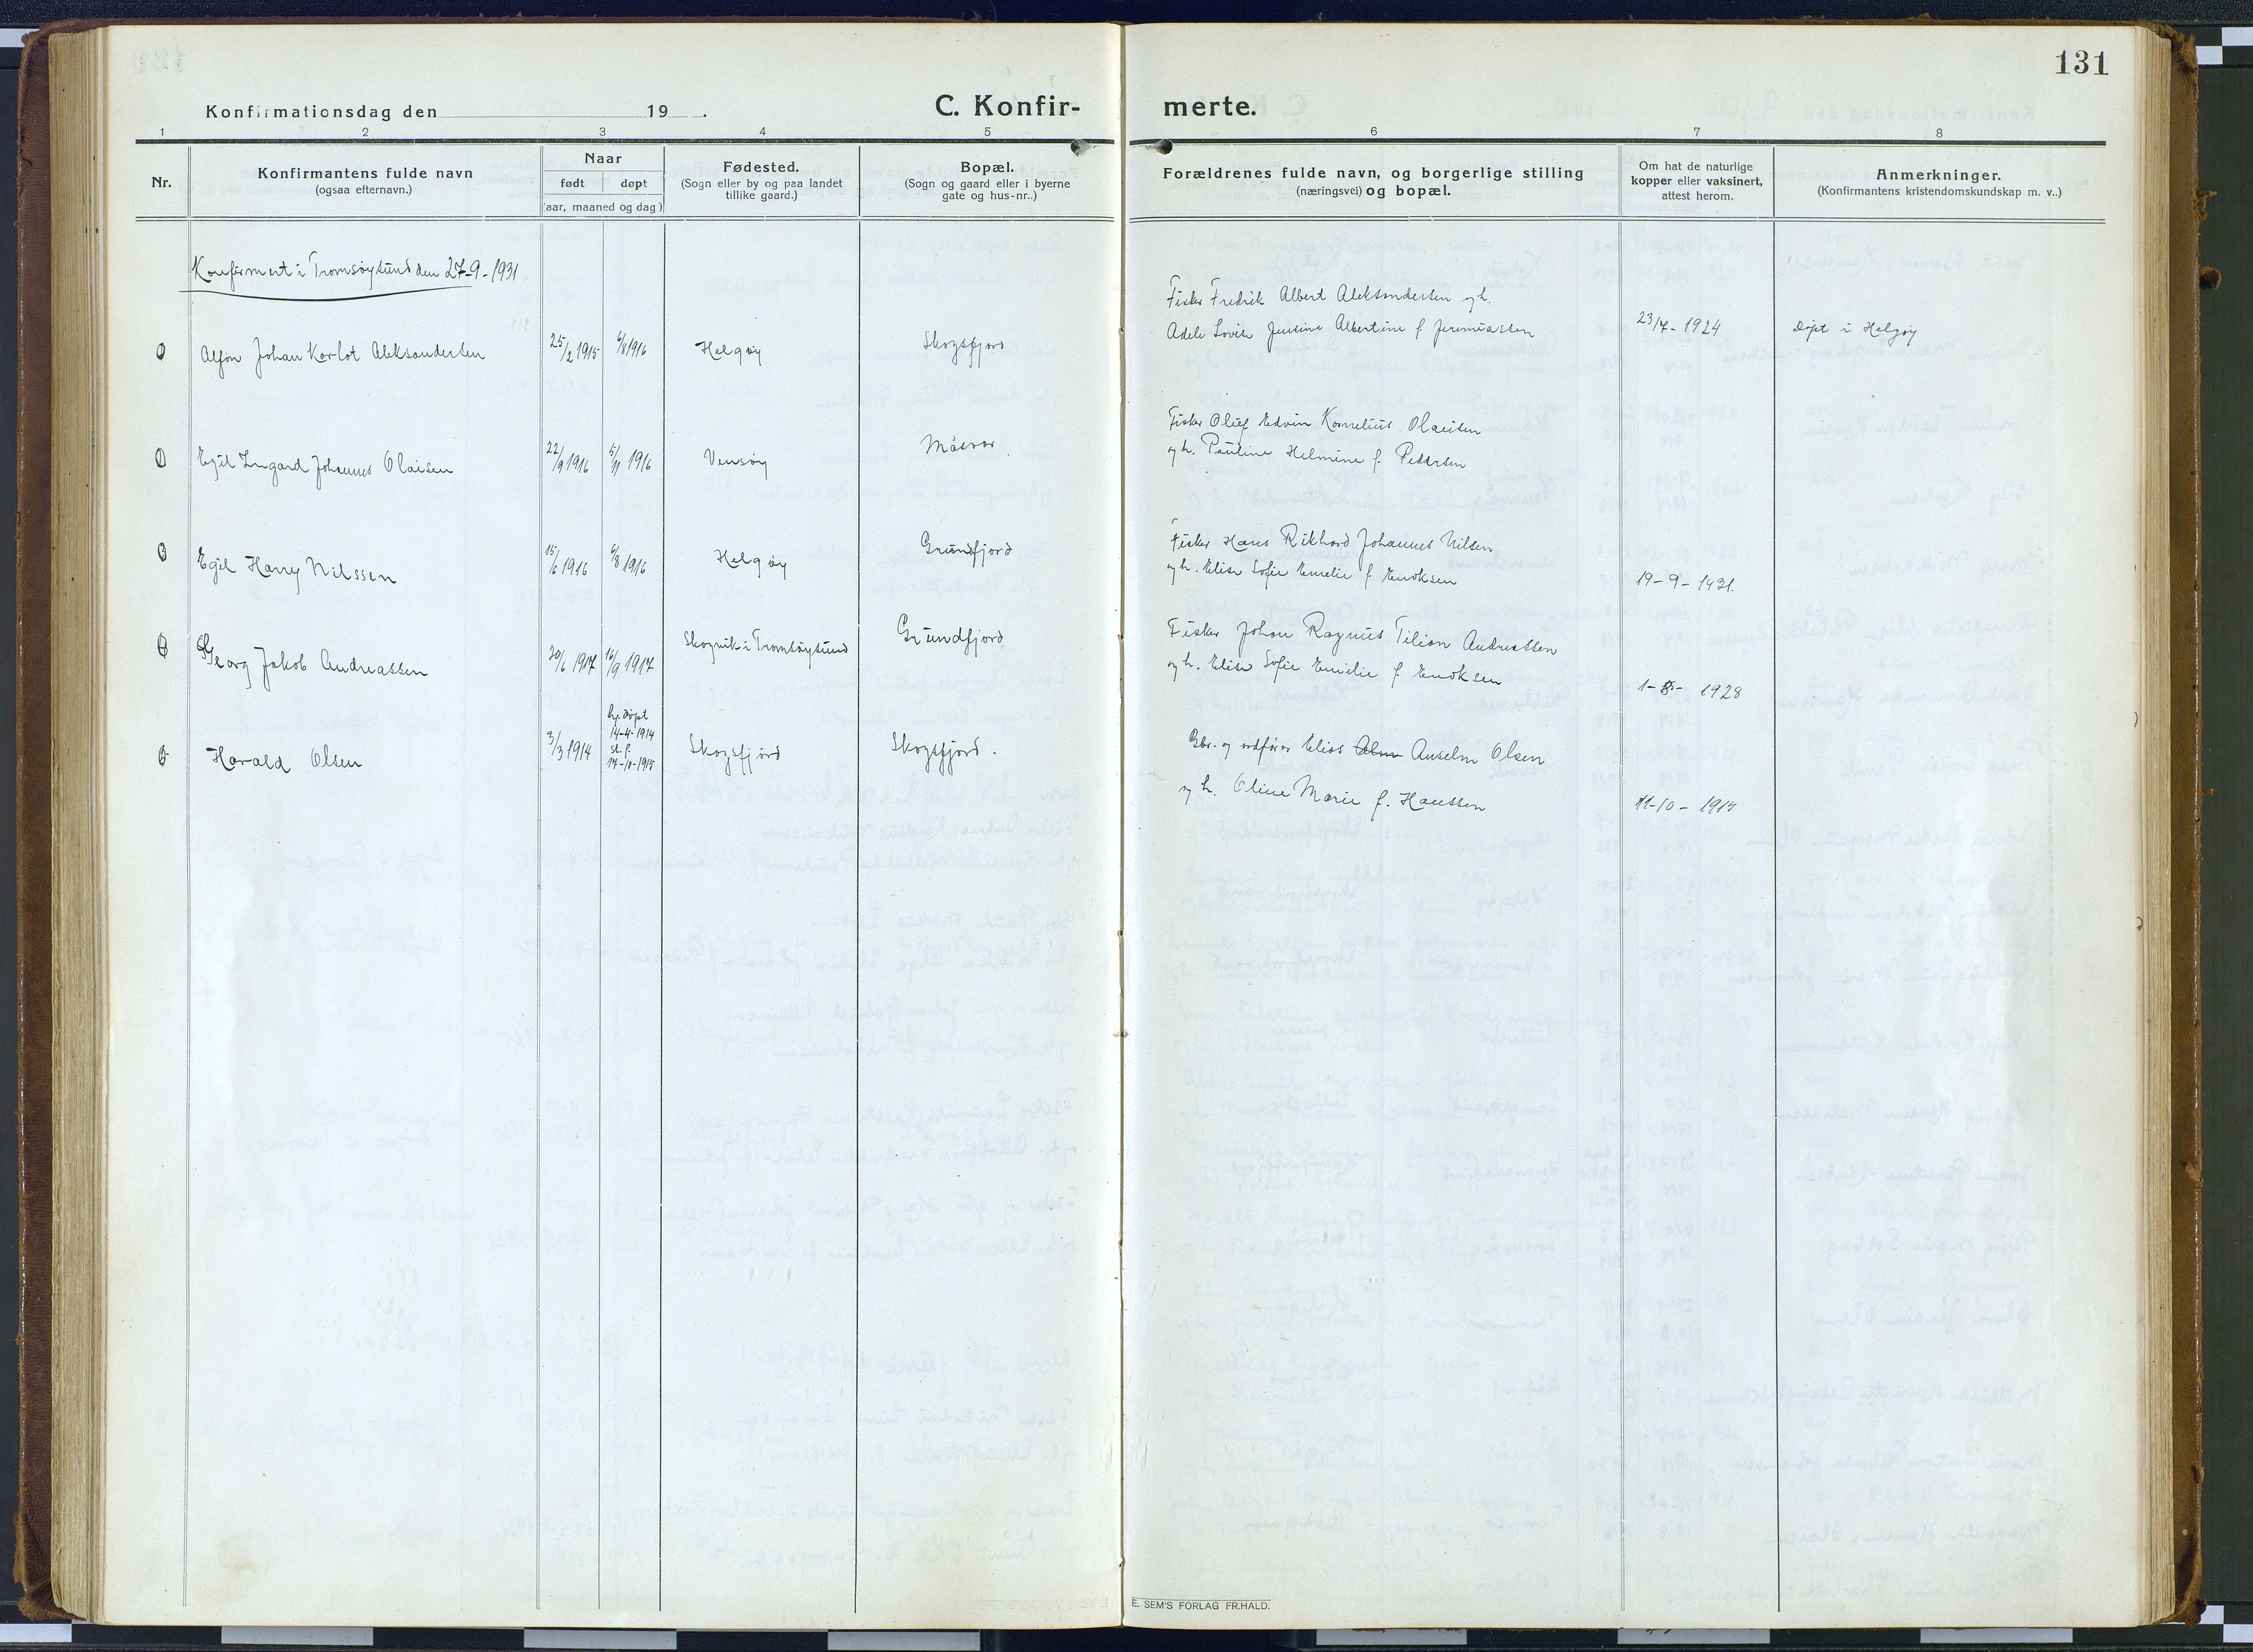 131
Konfirmationsdag den 19 .
C. Konfir-
merte.
1 2 3 4 5 6 7 8
Nr.
Konfirmantens fulde navn
(ogsaa efternavn.)
Naar
født døpt
(aar, maaned og dag)
Fødested.
(Sogn eller by og paa landet
tillike gaard.)
Bopæl.
(Sogn og gaard eller i byerne
gate og hus-nr..)
Forældrenes fulde navn, og borgerlige stilling
(næringsvei) og bopæl.
Om hat de naturlige
kopper eller vaksinert,
attest herom.
Anmerkninger.
(Konfirmantens kristendomskundskap m. v..)
Konfirmert i Tromsøysund den 27-9-1931
Fisker Fredrik Albert Aleksandersen og h.
Adele Lovise Jensine Albertine f Jeremiassen
23/7 - 1924
døpt i Helgøy
Alfon Johan Karlot Aleksandersen 25/2 1915 6/8 1916 Helgøy Skogsfjord
Fisker Oluf Edvin Kornelius Olaisen
og h. Pauline Helmine f. Pedersen
Egil Ingard Johannes Olaisen 22/9 1916 5/11 1916 Vensøy Måsvær
Fisker Hans Rikhard Johannes Nilsen
og h. Elise Sofie Emelie f Enoksen
19-9-1931.
Egil Harry Nilssen 15/6 1916 6/8 1916 Helgøy Grundfjord
Fisker Johan Ragnus Tilion Andreassen
og h. Elise Sofie Emilie f Enoksen
1- 1928
Georg Jakob Andreassen 30/6 1917 16/9 1917 Skogvik i Tromsøysund Grundfjord
Gbr. og ordfører Elias Anselm Olsen
og h. Oline Marie f. Hanssen
11-10-1915
Harald Olsen 3/3 1914 hj.døpt
14-4-1914
st. f.
17-10-1915
Skogsfjord Skogsfjord.
E. SEM'S FORLAG FR.HALD.